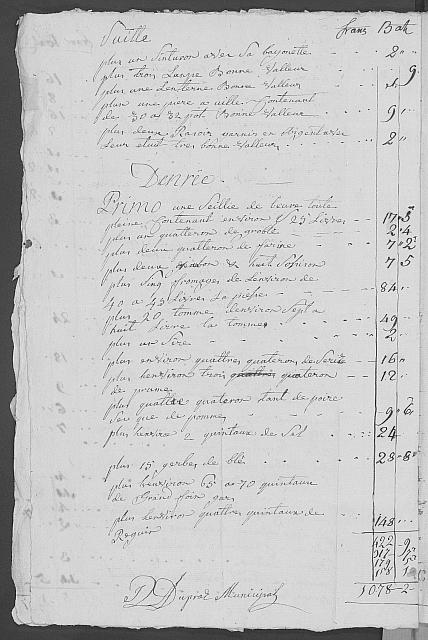 Suitte franz Batz
plus un Sinturon avec Sa bayonette 2 "
plus trois Lanse Bonne Valleur 9
plus une Lenterne Bonne Valleur
plus une piere a uille Contenant
de 30 a 32 pot Bonne Valleur 9 "
plus deux Rasoir garnis en argent avec
Leur étuit tres bonne Valleur 2 "
Denrée
Primo une Seillie de beure toute
pleine Contenant environ 25 Livres 17 " 5
plus un quatteron de groble 2 " 4
plus deux quatteron de farine 7 " 2
plus deux et huit 7 5
plus Sinq fromages de Lenviron de
40 a 45 Livres La piesse 84 "
plus 20 tomme denviron Sept a
huit Livre la tomme 49 "
plus un Sere 2 "
plus environ quattres quateron de 16 "
plus henviron trois quattres quateron 12 "
de prume
plus quattre quateron tant de poire
Seique de pomme 9 " 6
plus henviron 2 quintaux de Sel 24
plus 15 gerbes de blé 28 " 8
plus henviron 65 a 70 quintaux
de Grand foin gars
plus henviron quattres quintaux de
Reguin 148 "
122 9
317
179
158 1
1078 " 2
Duprat Municipal